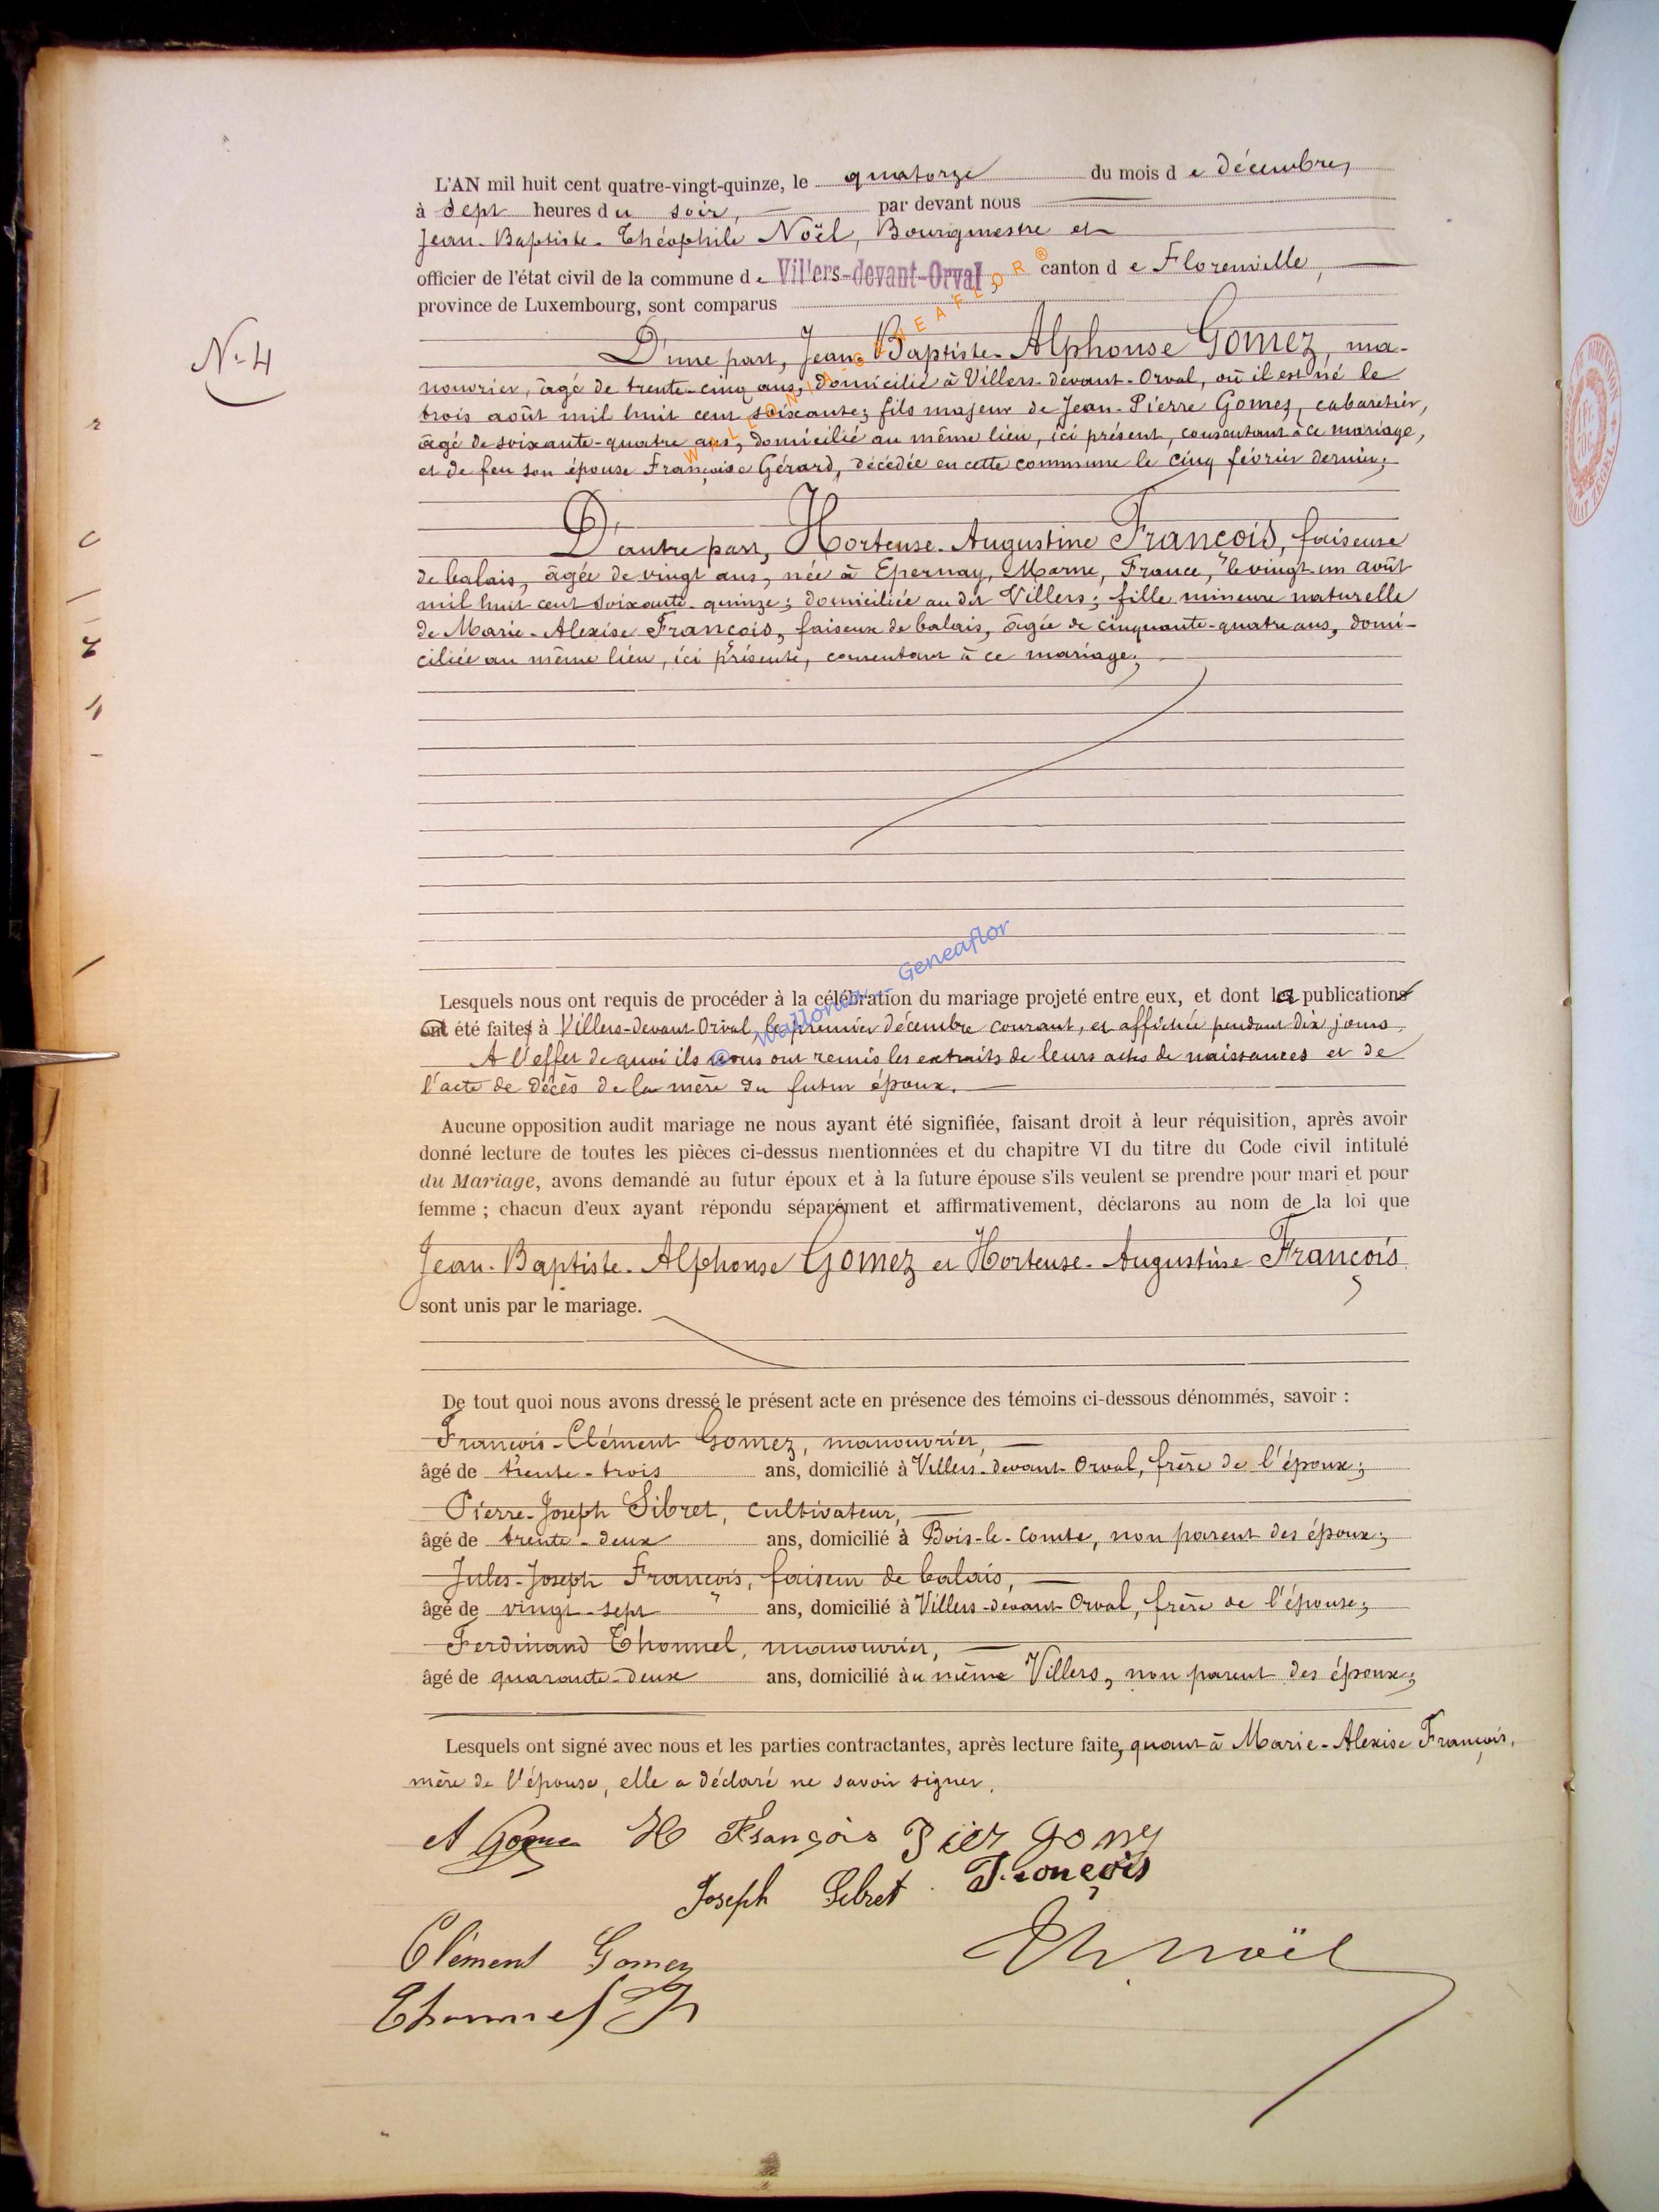 L'AN mil huit cent quatre-vingt-quinze, le quatorze du mois de décembre,
à sept heures du soir, par devant nous
Jean-Baptiste-Théophile Noël, Bourgmestre et
officier de l'état civil de la commune de Villers-devant-Orval, canton de Florenville,
province de Luxembourg, sont comparus
N-4
D'une part, Jean-Baptiste-Alphonse Gomez, ma-
nouvrier, âgé de trente-cinq ans, domicilié à Villers-devant-Orval, où il est né le
trois août mil huit cent soixante; fils majeur de Jean-Pierre Gomez, cabaretier,
âgé de soixante-quatre ans, domicilié au même lieu, ici présent, consentant à ce mariage,
et de feu son épouse Françoise Gérard, décédée en cette commune le cinq février dernier;
WALLONIA-GENEAFLOR®
D'autre part, Hortense-Augustine François, faiseuse
de balais, âgée de vingt ans, née à Epernay, Marne, France, le vingt-un août
mil huit cent soixante-quinze; domiciliée au dit Villers; fille mineure naturelle
de Marie-Alexise François, faiseuse de balais, âgée de cinquante-quatre ans, domi-
ciliée au même lieu, ici présente, consentant à ce mariage;
© Wallonia - Geneaflor
Lesquels nous ont requis de procéder à la célébration du mariage projeté entre eux, et dont la publication
a été faite à Villers-devant-Orval, le premier décembre courant, et affichée pendant dix jours.
A l'effet de quoi ils nous ont remis les extraits de leurs actes de naissances et de
l'acte de décès de la mère du futur époux.
Aucune opposition audit mariage ne nous ayant été signifiée, faisant droit à leur réquisition, après avoir
donné lecture de toutes les pièces ci-dessus mentionnées et du chapitre VI du titre du Code civil intitulé
du Mariage, avons demandé au futur époux et à la future épouse s'ils veulent se prendre pour mari et pour
femme ; chacun d'eux ayant répondu séparément et affirmativement, déclarons au nom de la loi que
Jean-Baptiste-Alphonse Gomez et Hortense-Augustine François
sont unis par le mariage.
De tout quoi nous avons dressé le présent acte en présence des témoins ci-dessous dénommés, savoir :
François-Clément Gomez, manouvrier,
âgé de trente-trois ans, domicilié à Villers-devant-Orval, frère de l'époux;
Pierre-Joseph Sibret, cultivateur,
âgé de trente-deux ans, domicilié à Bois-le-Comte, non parent des époux;
Jules-Joseph François, faiseur de balais,
âgé de vingt-sept ans, domicilié à Villers-devant-Orval, frère de l'épouse;
Ferdinand Thonnel, manouvrier,
âgé de quarante-deux ans, domicilié au même Villers, non parent des époux;
Lesquels ont signé avec nous et les parties contractantes, après lecture faite, quant à Marie-Alexise François,
mère de l'épouse, elle a déclaré ne savoir signer.
A Gomez H François Pier gomez
Joseph Sibret François
Clément Gomez Th Noël
Thonnel F